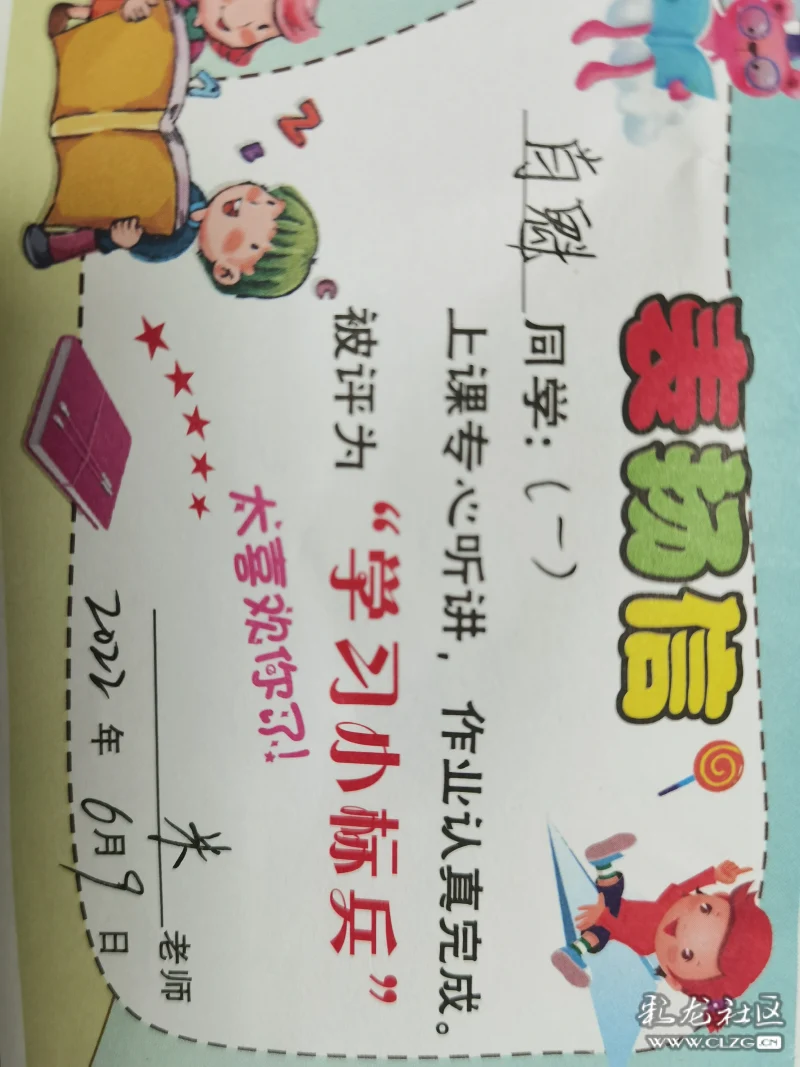 表扬信
肖魁同学：(一)
上课专心听讲，作业认真完成。
被评为“学习小标兵”
太喜欢你了！
米老师
2022年6月9日
彩龙社区
WWW.CLZG.CN